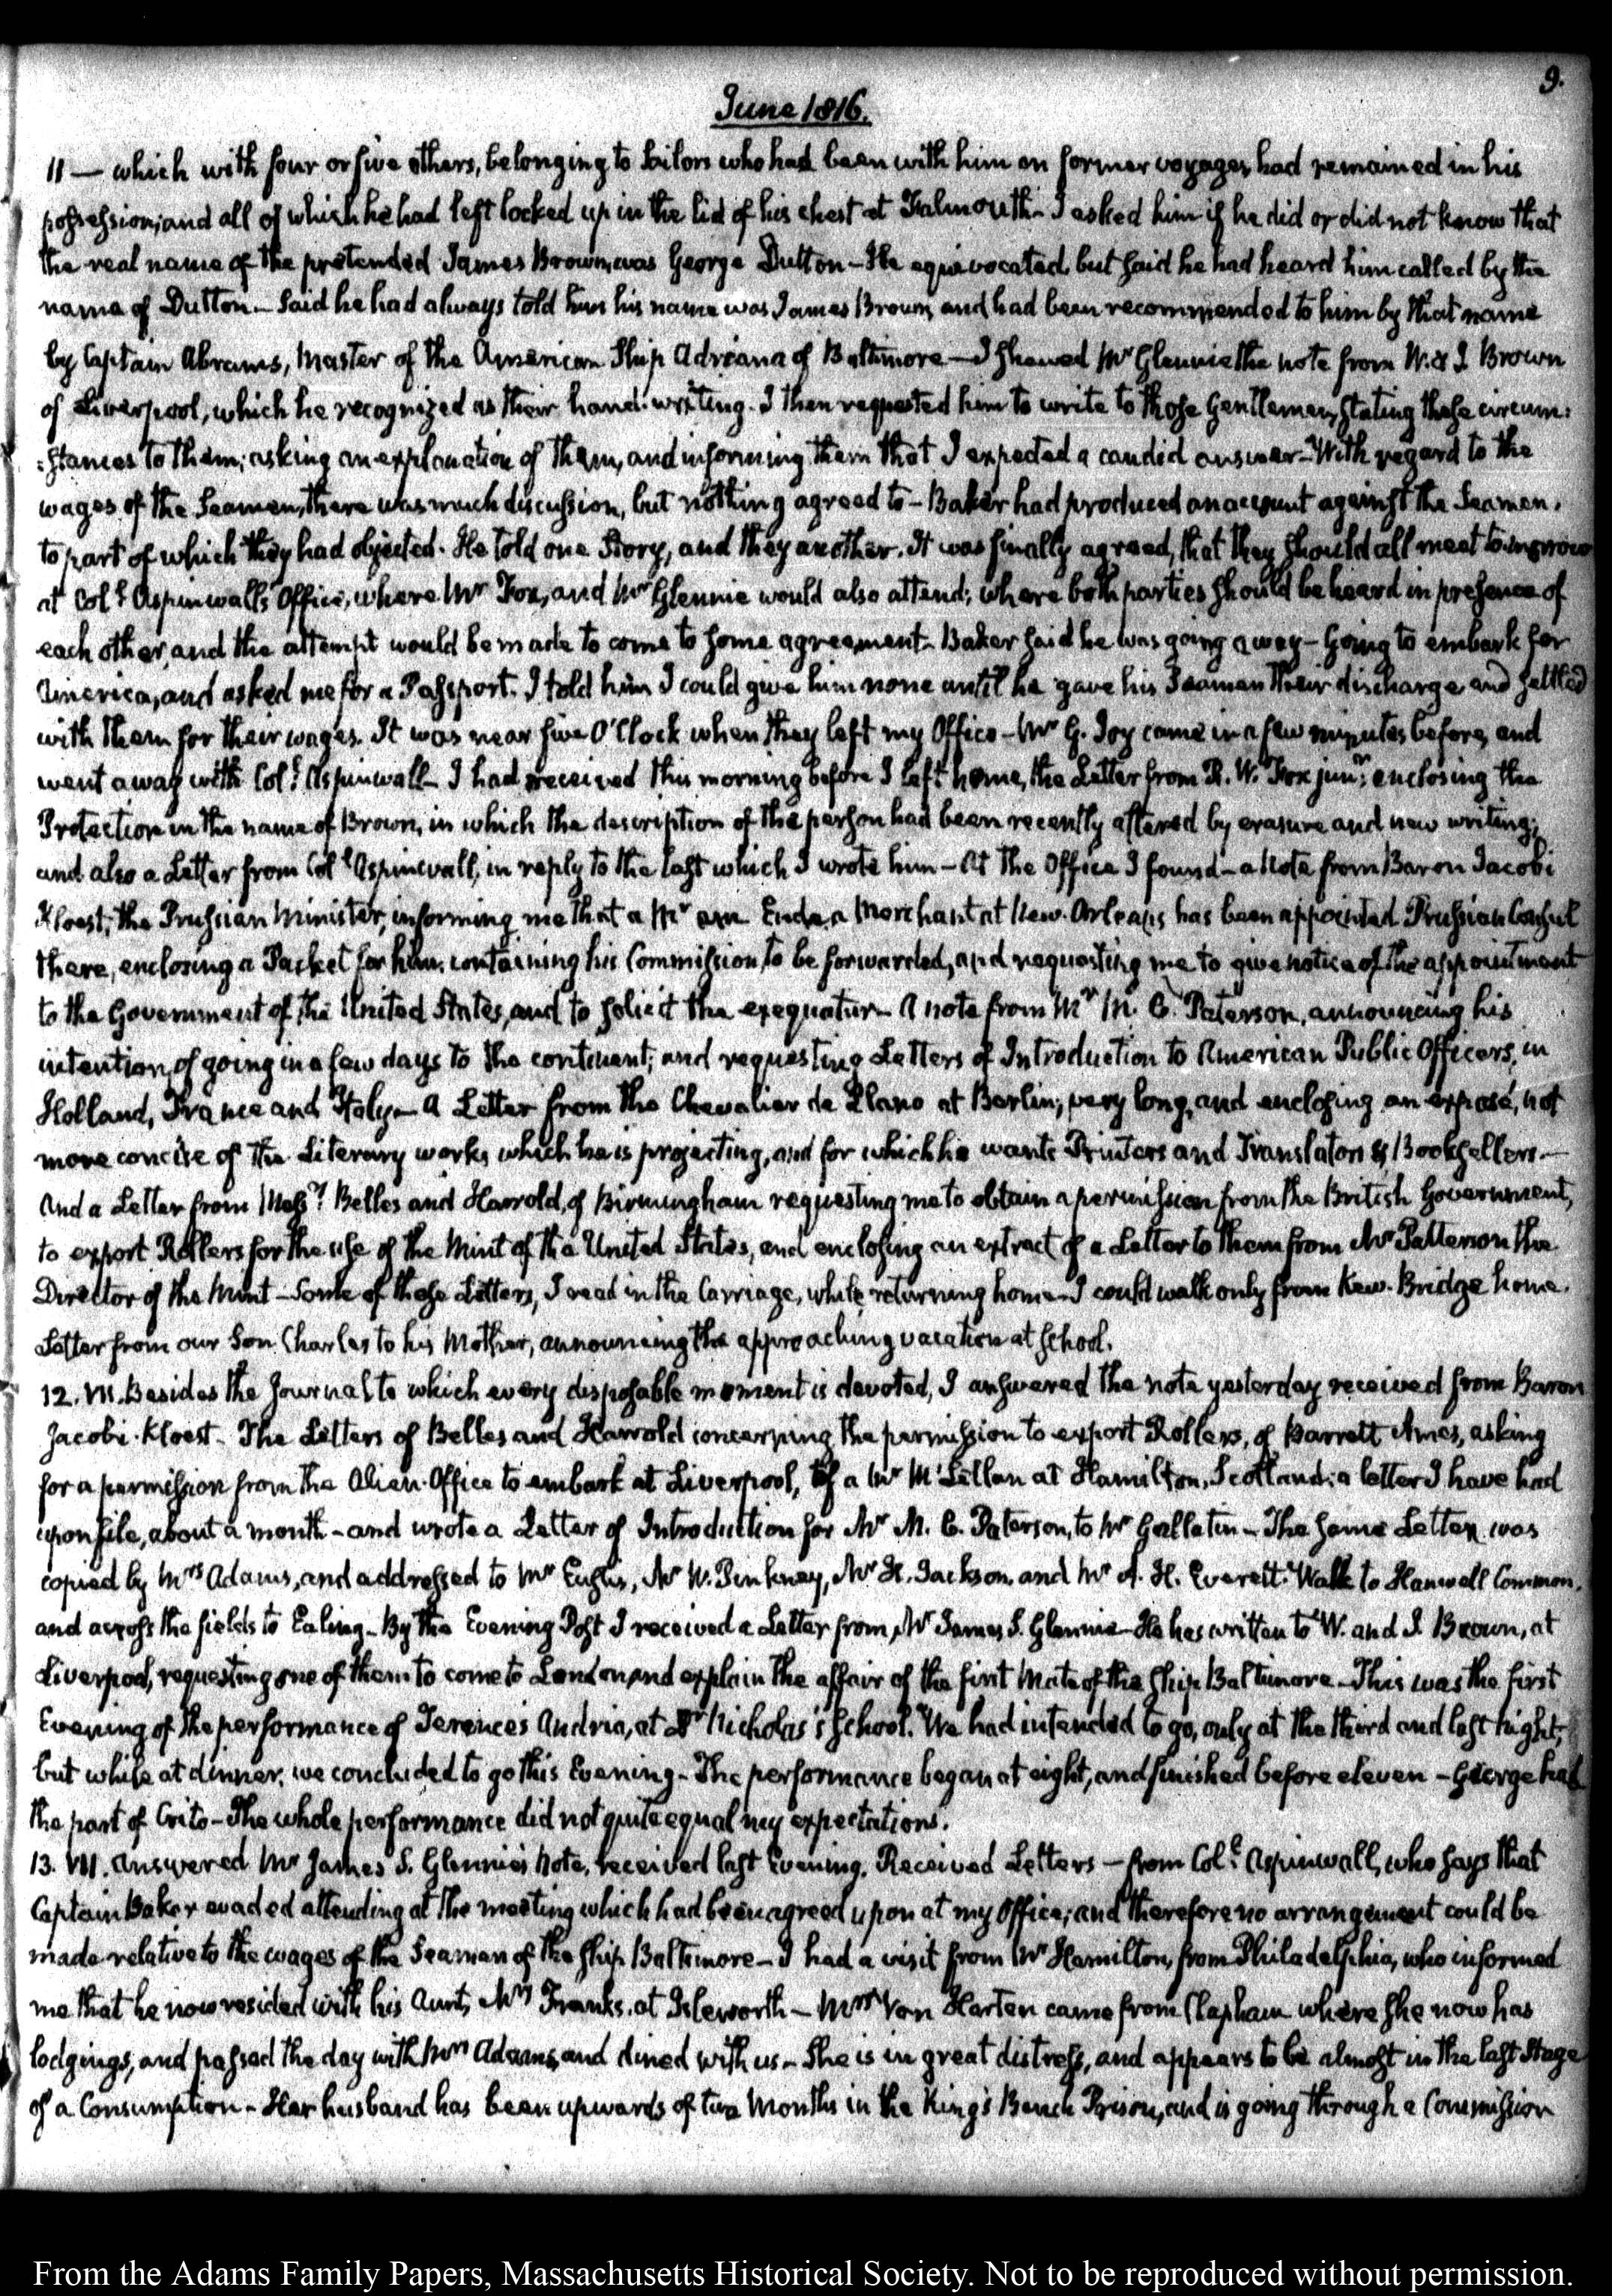 9.
June 1816.
11 — which with four or five others, belonging to Sailors who had been with him on former voyages, had remained in his
possession; and all of which he had left locked up in the lid of his chest at Falmouth – I asked him if he did or did not know that
the real name of the pretended James Brown, was George Dutton – He equivocated, but said he had heard him called by the
name of Dutton – Said he had always told him his name was James Brown, and had been recommended to him by that name
by Captain Abrams, Master of the American Ship Adriana of Baltimore – I shewed Mr Glennie the note from W. & J. Brown
of Liverpool, which he recognized as their hand-writing. I then requested him to write to those Gentlemen, stating these circum:
:stances to them; asking an explanation of them, and informing them that I expected a candid answer – With regard to the
wages of the Seamen, there was much discussion, but nothing agreed to – Baker had produced an account against the Seamen,
to part of which they had objected. He told one Story, and they another. It was finally agreed, that they should all meet to-morrow
at Coll. Aspinwall's Office, where Mr Fox, and Mr Glennie would also attend; where both parties should be heard in presence of
each other, and the attempt would be made to come to some agreement – Baker said he was going away – Going to embark for
America, and asked me for a Passport. I told him I could give him none until he gave his Seamen their discharge and settled
with them for their wages. It was near five O'Clock when they left my Office – Mr G. Joy came in a few minutes before, and
went away with Coll. Aspinwall – I had received this morning before I left home, the Letter from R. W. Fox junr. enclosing the
Protection in the name of Brown, in which the description of the person had been recently altered by erasure and new writing;
and also a Letter from Coll Aspinwall, in reply to the last which I wrote him – At the Office I found – a Note from Baron Jacobi
Kloest, the Prussian Minister, informing me that a Mr am Ende a Merchant at New-Orleans has been appointed Prussian Consul
there, enclosing a Packet for him, containing his Commission, to be forwarded, and requesting me to give notice of the appointment
to the Government of the United States, and to solicit the exequatur – A note from Mr M. C. Paterson, announcing his
intention, of going in a few days to the continent; and requesting Letters of Introduction to American Public Officers, in
Holland, France and Italy – A Letter from the Chevalier de Llano at Berlin; very long, and enclosing an exposé, not
more concise of the Literary works which he is projecting, and for which he wants Printers and Translators & Booksellers –
And a Letter from Messrs. Belles and Harrold, of Birmingham requesting me to obtain a permission from the British Government,
to export Rollers for the use of the Mint of the United States, and enclosing an extract of a Letter to them from Mr Patterson the
Director of the Mint – Some of these Letters, I read in the Carriage, while returning home – I could walk only from Kew-Bridge home.
Letter from our Son Charles to his Mother, announcing the approaching vacation at School.
12. VII. Besides the Journal to which every disposable moment is devoted, I answered the note yesterday received from Baron
Jacobi-Kloest – The Letters of Belles and Harrold concerning the permission to export Rollers, of Barrett Ames, asking
for a permission from the Alien-Office to embark at Liverpool, Of a Mr McLellan at Hamilton, Scotland; a letter I have had
upon file, about a month – and wrote a Letter of Introduction for Mr M. C. Paterson, to Mr Gallatin – The same Letter was
copied by Mrs Adams, and addressed to Mr Eustis, Mr W. Pinkney, Mr H. Jackson, and Mr A. H. Everett. Walk to Hanwell Common,
and across the fields to Ealing – By the Evening Post I received a Letter from Mr James S. Glennie – He has written to W. and J. Brown, at
Liverpool, requesting one of them to come to London and explain the affair of the first Mate of the Ship Baltimore – This was the first
Evening of the performance of Terence's Andria, at Dr Nicholas's School. We had intended to go, only at the third and last night,
but while at dinner, we concluded to go this Evening – The performance began at eight, and finished before eleven – George had
the part of Crito – The whole performance did not quite equal my expectations.
13. VII. Answered Mr James S. Glennie's Note, received last Evening. Received Letters – from Coll. Aspinwall, who says that
Captain Baker evaded attending at the meeting which had been agreed upon at my Office; and therefore no arrangement could be
made relative to the wages of the Seamen of the Ship Baltimore – I had a visit from Mr Hamilton, from Philadelphia, who informed
me that he now resided with his Aunt, Mrs Franks, at Isleworth – Mrs Von Harten came from Clapham where she now has
lodgings, and passed the day with Mrs Adams, and dined with us – She is in great distress, and appears to be almost in the last Stage
of a Consumption – Her husband has been upwards of two Months in the King's Bench Prison, and is going through a Commission
From the Adams Family Papers, Massachusetts Historical Society. Not to be reproduced without permission.